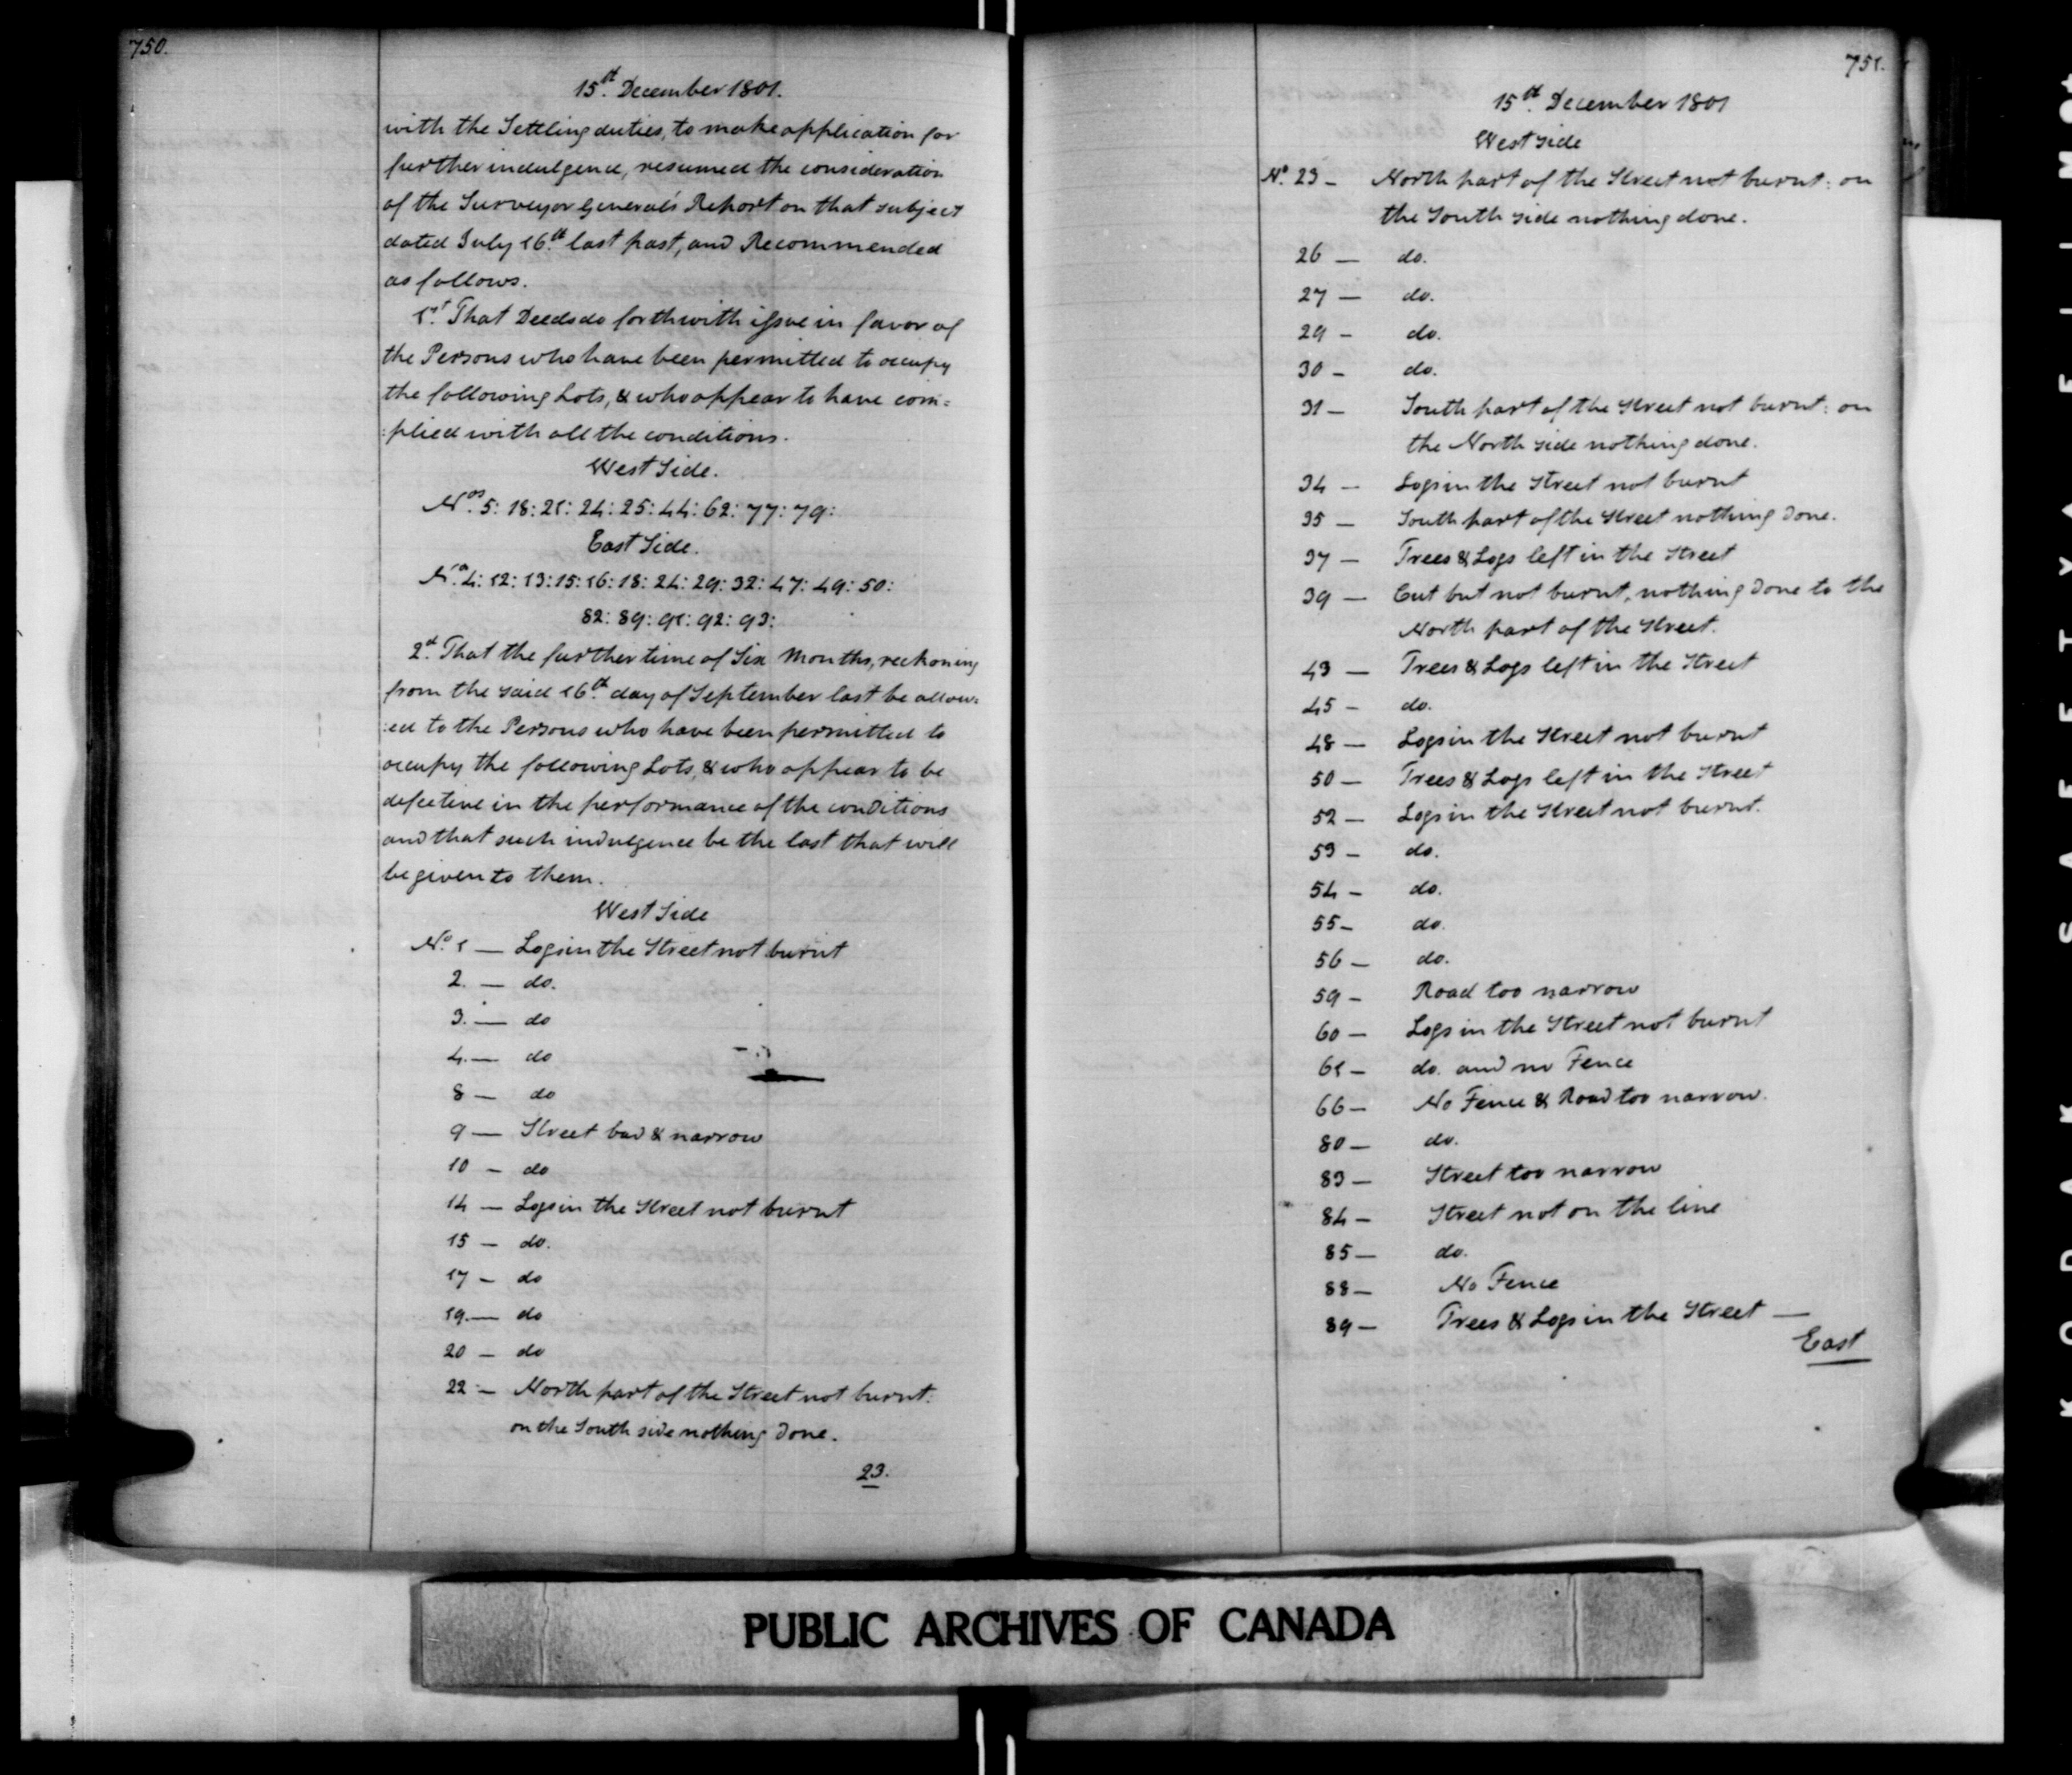 750.
15th December 1801.
with the Settling duties, to make application for
further indulgence, resumed the consideration
of the Surveyor General's Report on that subject
dated July 16th last past, and Recommended
as follows.
1st That Deeds do forthwith issue in favor of
the Persons who have been permitted to occupy
the following Lots, & who appear to have com=
:plied with all the conditions.
West Side.
Nos. 5: 18: 21: 24: 25: 44: 62: 77: 79:
East Side.
Nos. 4: 12: 13: 15: 16: 18: 24: 29: 32: 47: 49: 50:
82: 89: 91: 92: 93:
2d. That the further time of Six Months, reckoning
from the said 16th day of September last be allow:
:ed to the Persons who have been permitted to
occupy the following Lots, & who appear to be
defective in the performance of the conditions
and that such indulgence be the last that will
be given to them.
West Side
No. 1 — Logs in the Street not burnt
2. — do.
3. — do
4. — do
8 — do
9 — Street bad & narrow
10 — do
14 — Logs in the Street not burnt
15 — do.
17 — do
19. — do
20 — do
22 — North part of the Street not burnt:
on the South side nothing done.
23.
751.
15th December 1801
West Side
No. 23 — North part of the Street not burnt: on
the South side nothing done.
26 — do.
27 — do.
29 — do.
30 — do.
31 — South part of the Street not burnt: on
the North side nothing done.
34 — Logs in the Street not burnt
35 — South part of the Street nothing done.
37 — Trees & Logs left in the Street
39 — Cut but not burnt, nothing done to the
North part of the Street.
43 — Trees & Logs left in the Street
45 — do.
48 — Logs in the Street not burnt
50 — Trees & Logs left in the Street
52 — Logs in the Street not burnt.
53 — do.
54 — do.
55 — do.
56 — do.
59 — Road too narrow
60 — Logs in the Street not burnt
61 — do. and no Fence
66 — No Fence & Road too narrow.
80 — do.
83 — Street too narrow
84 — Street not on the line
85 — do.
88 — No Fence
89 — Trees & Logs in the Street —
East
PUBLIC ARCHIVES OF CANADA